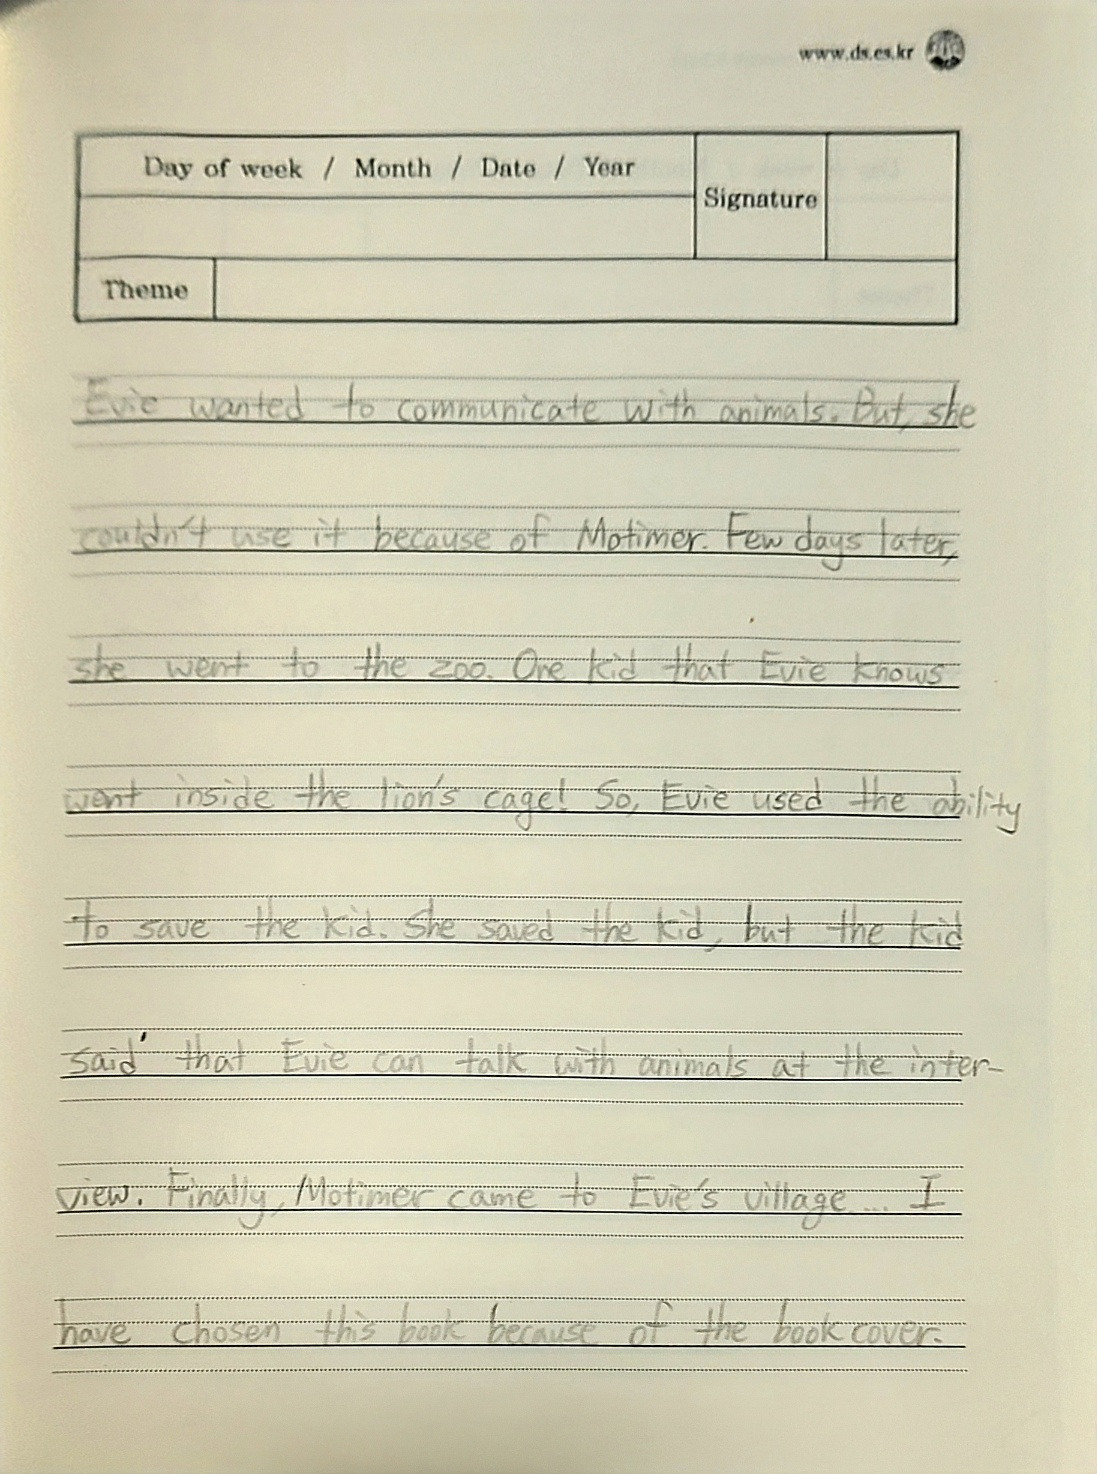 www.ds.es.kr
Day of week / Month / Date / Year
Signature
Theme
Evie wanted to communicate with animals. But, she
couldn't use it because of Motimer. Few days later,
she went to the zoo. One kid that Evie knows
went inside the lion's cage! So, Evie used the ability
to save the kid. She saved the kid, but the kid
said' that Evie can talk with animals at the inter-
view. Finally, Motimer came to Evie's village.... I
have chosen this book because of the book cover.